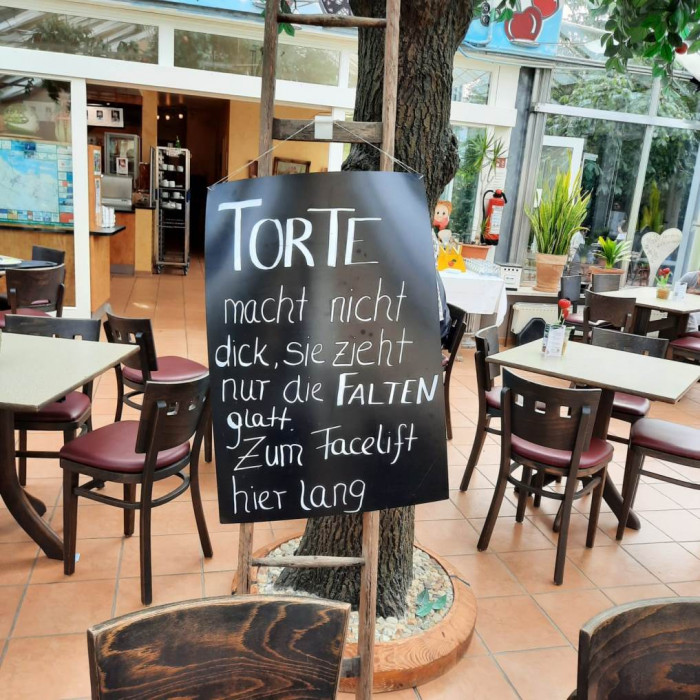 TORTE
macht nicht
dick, sie zieht
nur die FALTEN
glatt.
Zum Facelift
hier lang